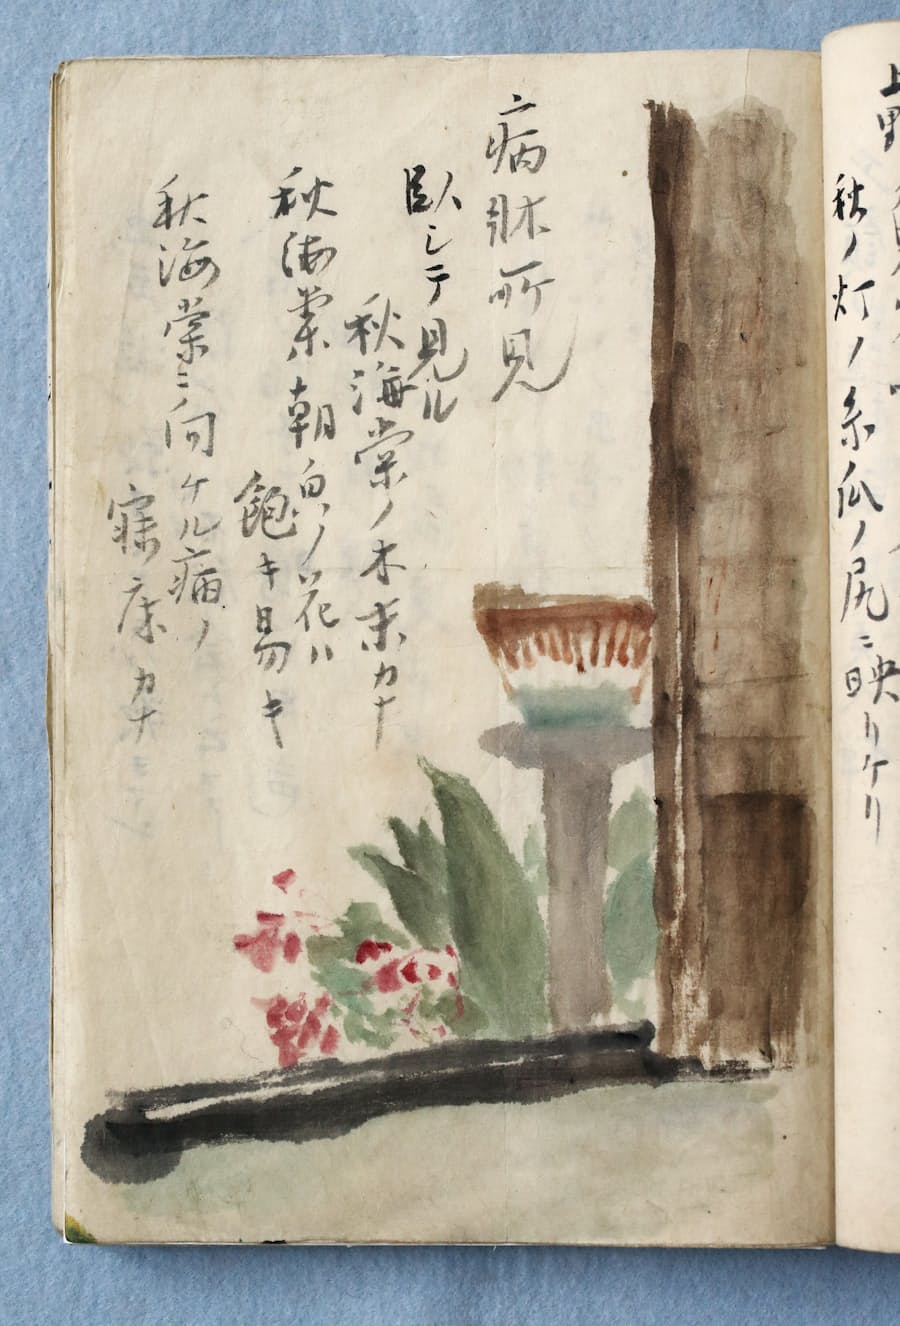 上野
秋ノ灯ノ糸瓜ノ尻ニ映リケリ
病牀所見
臥シテ見ル
秋海棠ノ木末カナ
秋海棠朝皃ノ花ハ
飽キ易キ
秋海棠ニ向ケル病ノ
寐床カナ